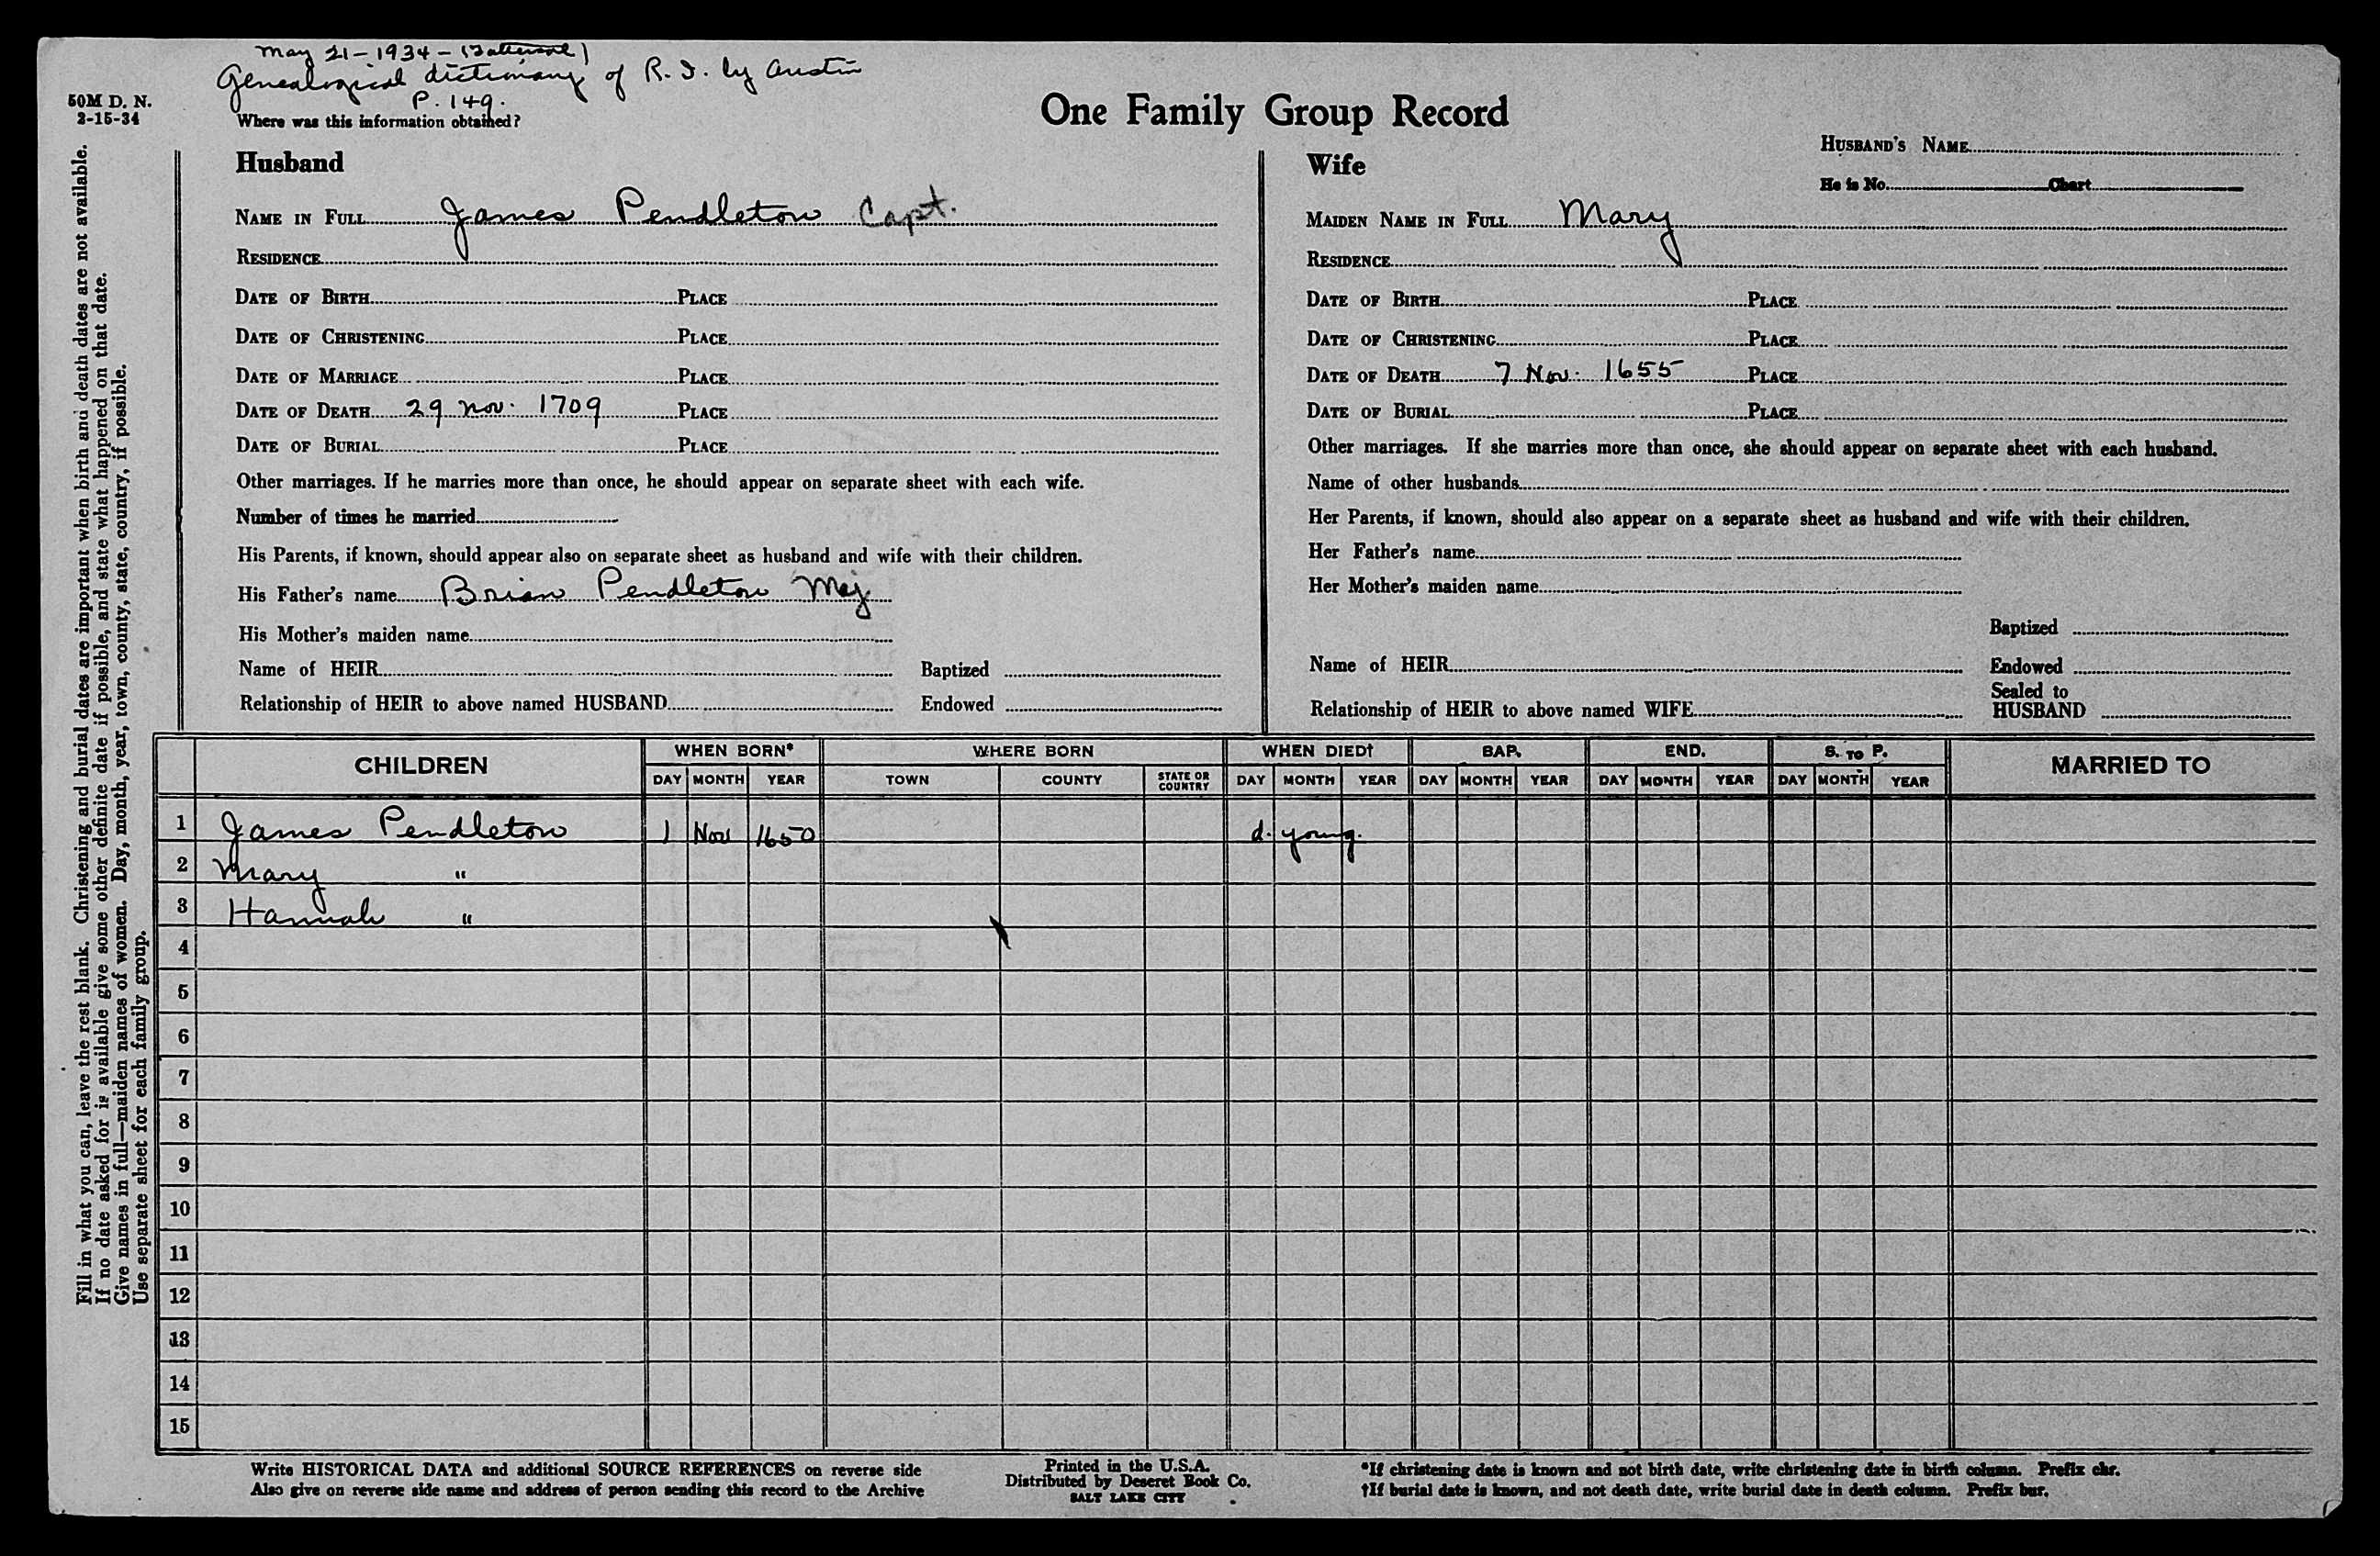 May 21-1934-
Genealogical dictionary of R. I. by Austin
P. 149.
50M D. N.
2-15-34
Where was this information obtained?
One Family Group Record
HUSBAND'S NAME
He is No. Chart
Husband
NAME IN FULL James Pendleton Capt.
RESIDENCE
DATE OF BIRTH PLACE
DATE OF CHRISTENING PLACE
DATE OF MARRIAGE PLACE
DATE OF DEATH 29 Nov. 1709 PLACE
DATE OF BURIAL PLACE
Other marriages. If he marries more than once, he should appear on separate sheet with each wife.
Number of times he married
His Parents, if known, should appear also on separate sheet as husband and wife with their children.
His Father's name Brian Pendleton Maj
His Mother's maiden name
Name of HEIR Baptized
Relationship of HEIR to above named HUSBAND Endowed
Wife
MAIDEN NAME IN FULL Mary
RESIDENCE
DATE OF BIRTH PLACE
DATE OF CHRISTENING PLACE
DATE OF DEATH 7 Nov. 1655 PLACE
DATE OF BURIAL PLACE
Other marriages. If she marries more than once, she should appear on separate sheet with each husband.
Name of other husbands
Her Parents, if known, should also appear on a separate sheet as husband and wife with their children.
Her Father's name
Her Mother's maiden name
Baptized
Name of HEIR Endowed
Sealed to
Relationship of HEIR to above named WIFE HUSBAND
Fill in what you can, leave the rest blank. Christening and burial dates are important when birth and death dates are not available.
If no date asked for is available give some other definite date if possible, and state what happened on that date.
Give names in full—maiden names of women. Day, month, year, town, county, state, country, if possible.
Use separate sheet for each family group.
CHILDREN WHEN BORN* WHERE BORN WHEN DIED† BAP. END. S. TO P. MARRIED TO
DAY MONTH YEAR TOWN COUNTY STATE OR COUNTRY DAY MONTH YEAR DAY MONTH YEAR DAY MONTH YEAR DAY MONTH YEAR
1 James Pendleton 1 Nov 1650 d. young.
2 Mary "
3 Hannah "
4
5
6
7
8
9
10
11
12
13
14
15
Write HISTORICAL DATA and additional SOURCE REFERENCES on reverse side
Also give on reverse side name and address of person sending this record to the Archive
Printed in the U.S.A.
Distributed by Deseret Book Co.
SALT LAKE CITY
*If christening date is known and not birth date, write christening date in birth column. Prefix chr.
†If burial date is known, and not death date, write burial date in death column. Prefix bur.